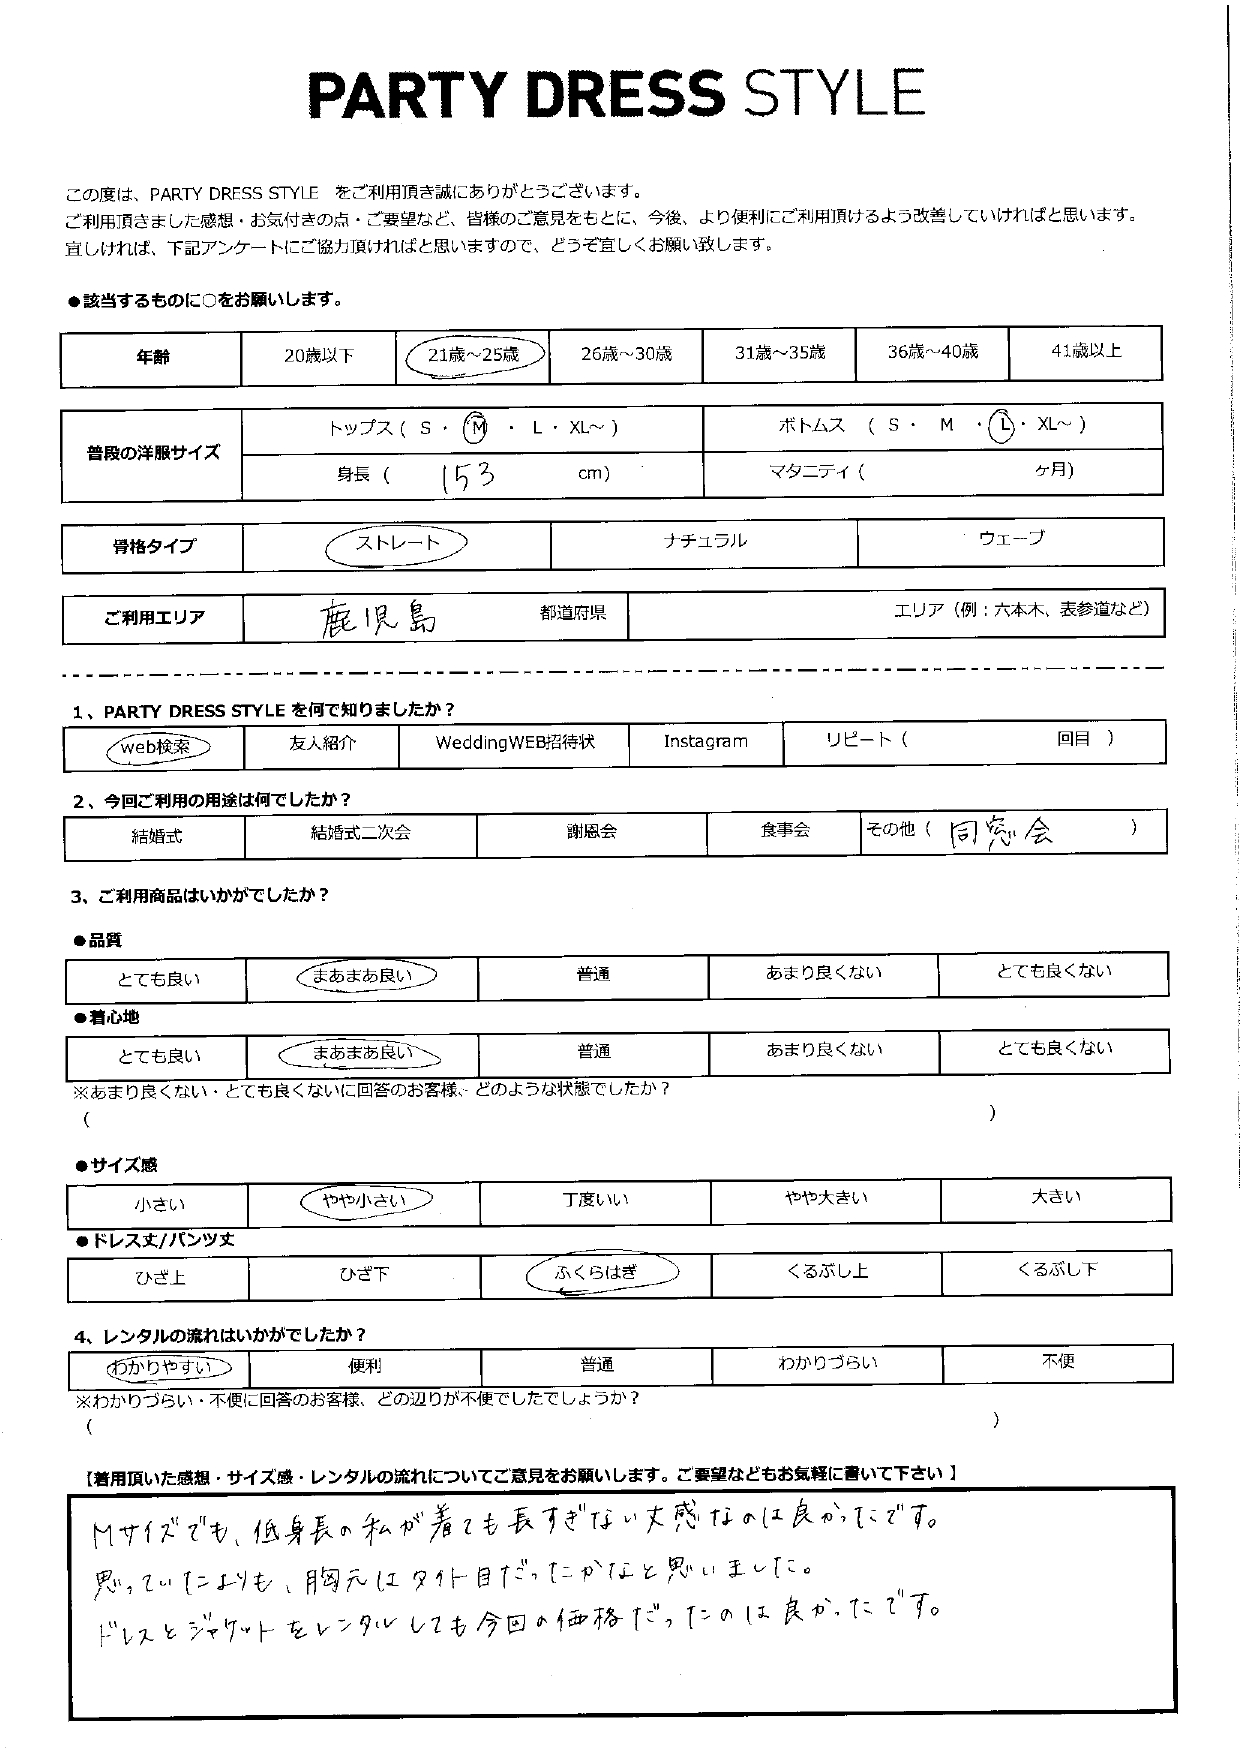 PARTY DRESS STYLE
この度は、PARTY DRESS STYLE をご利用頂き誠にありがとうございます。
ご利用頂きました感想・お気付きの点・ご要望など、皆様のご意見をもとに、今後、より便利にご利用頂けるよう改善していければと思います。
宜しければ、下記アンケートにご協力頂ければと思いますので、どうぞ宜しくお願い致します。
●該当するものに○をお願いします。
年齢 20歳以下 21歳～25歳 26歳～30歳 31歳～35歳 36歳～40歳 41歳以上
普段の洋服サイズ トップス ( S ・ M ・ L ・ XL～ ) ボトムス ( S ・ M ・ L ・ XL～ )
身長 ( 153 cm) マタニティ ( ヶ月)
骨格タイプ ストレート ナチュラル ウェーブ
ご利用エリア 鹿児島 都道府県 エリア（例：六本木、表参道など）
1、PARTY DRESS STYLE を何で知りましたか？
web検索 友人紹介 WeddingWEB招待状 Instagram リピート ( 回目 )
2、今回ご利用の用途は何でしたか？
結婚式 結婚式二次会 謝恩会 食事会 その他 ( 同窓会 )
3、ご利用商品はいかがでしたか？
●品質
とても良い まあまあ良い 普通 あまり良くない とても良くない
●着心地
とても良い まあまあ良い 普通 あまり良くない とても良くない
※あまり良くない・とても良くないに回答のお客様、どのような状態でしたか？
( )
●サイズ感
小さい やや小さい 丁度いい やや大きい 大きい
●ドレス丈/パンツ丈
ひざ上 ひざ下 ふくらはぎ くるぶし上 くるぶし下
4、レンタルの流れはいかがでしたか？
わかりやすい 便利 普通 わかりづらい 不便
※わかりづらい・不便に回答のお客様、どの辺りが不便でしたでしょうか？
( )
【着用頂いた感想・サイズ感・レンタルの流れについてご意見をお願いします。ご要望などもお気軽に書いて下さい】
Mサイズでも、低身長の私が着ても長すぎない丈感なのは良かったです。
思っていたよりも、胸元はタイト目だったかなと思いました。
ドレスとジャケットをレンタルしても今回の価格だったのは良かったです。